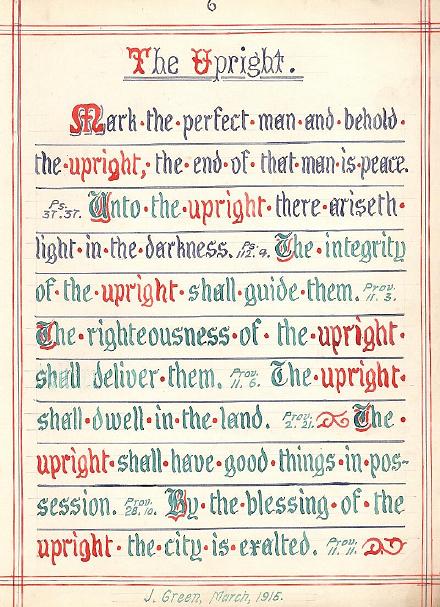 6
The Upright.
Mark the perfect man and behold
the upright, the end of that man is peace.
Ps. 37.37. Unto the upright there ariseth
light in the darkness. Ps. 112.4. The integrity
of the upright shall guide them. Prov. 11. 3.
The righteousness of the upright
shall deliver them. Prov. 11. 6. The upright
shall dwell in the land. Prov. 2. 21. The
upright shall have good things in pos-
session. Prov. 28. 10. By the blessing of the
upright the city is exalted. Prov. 11. 11.
J. Green, March, 1915.